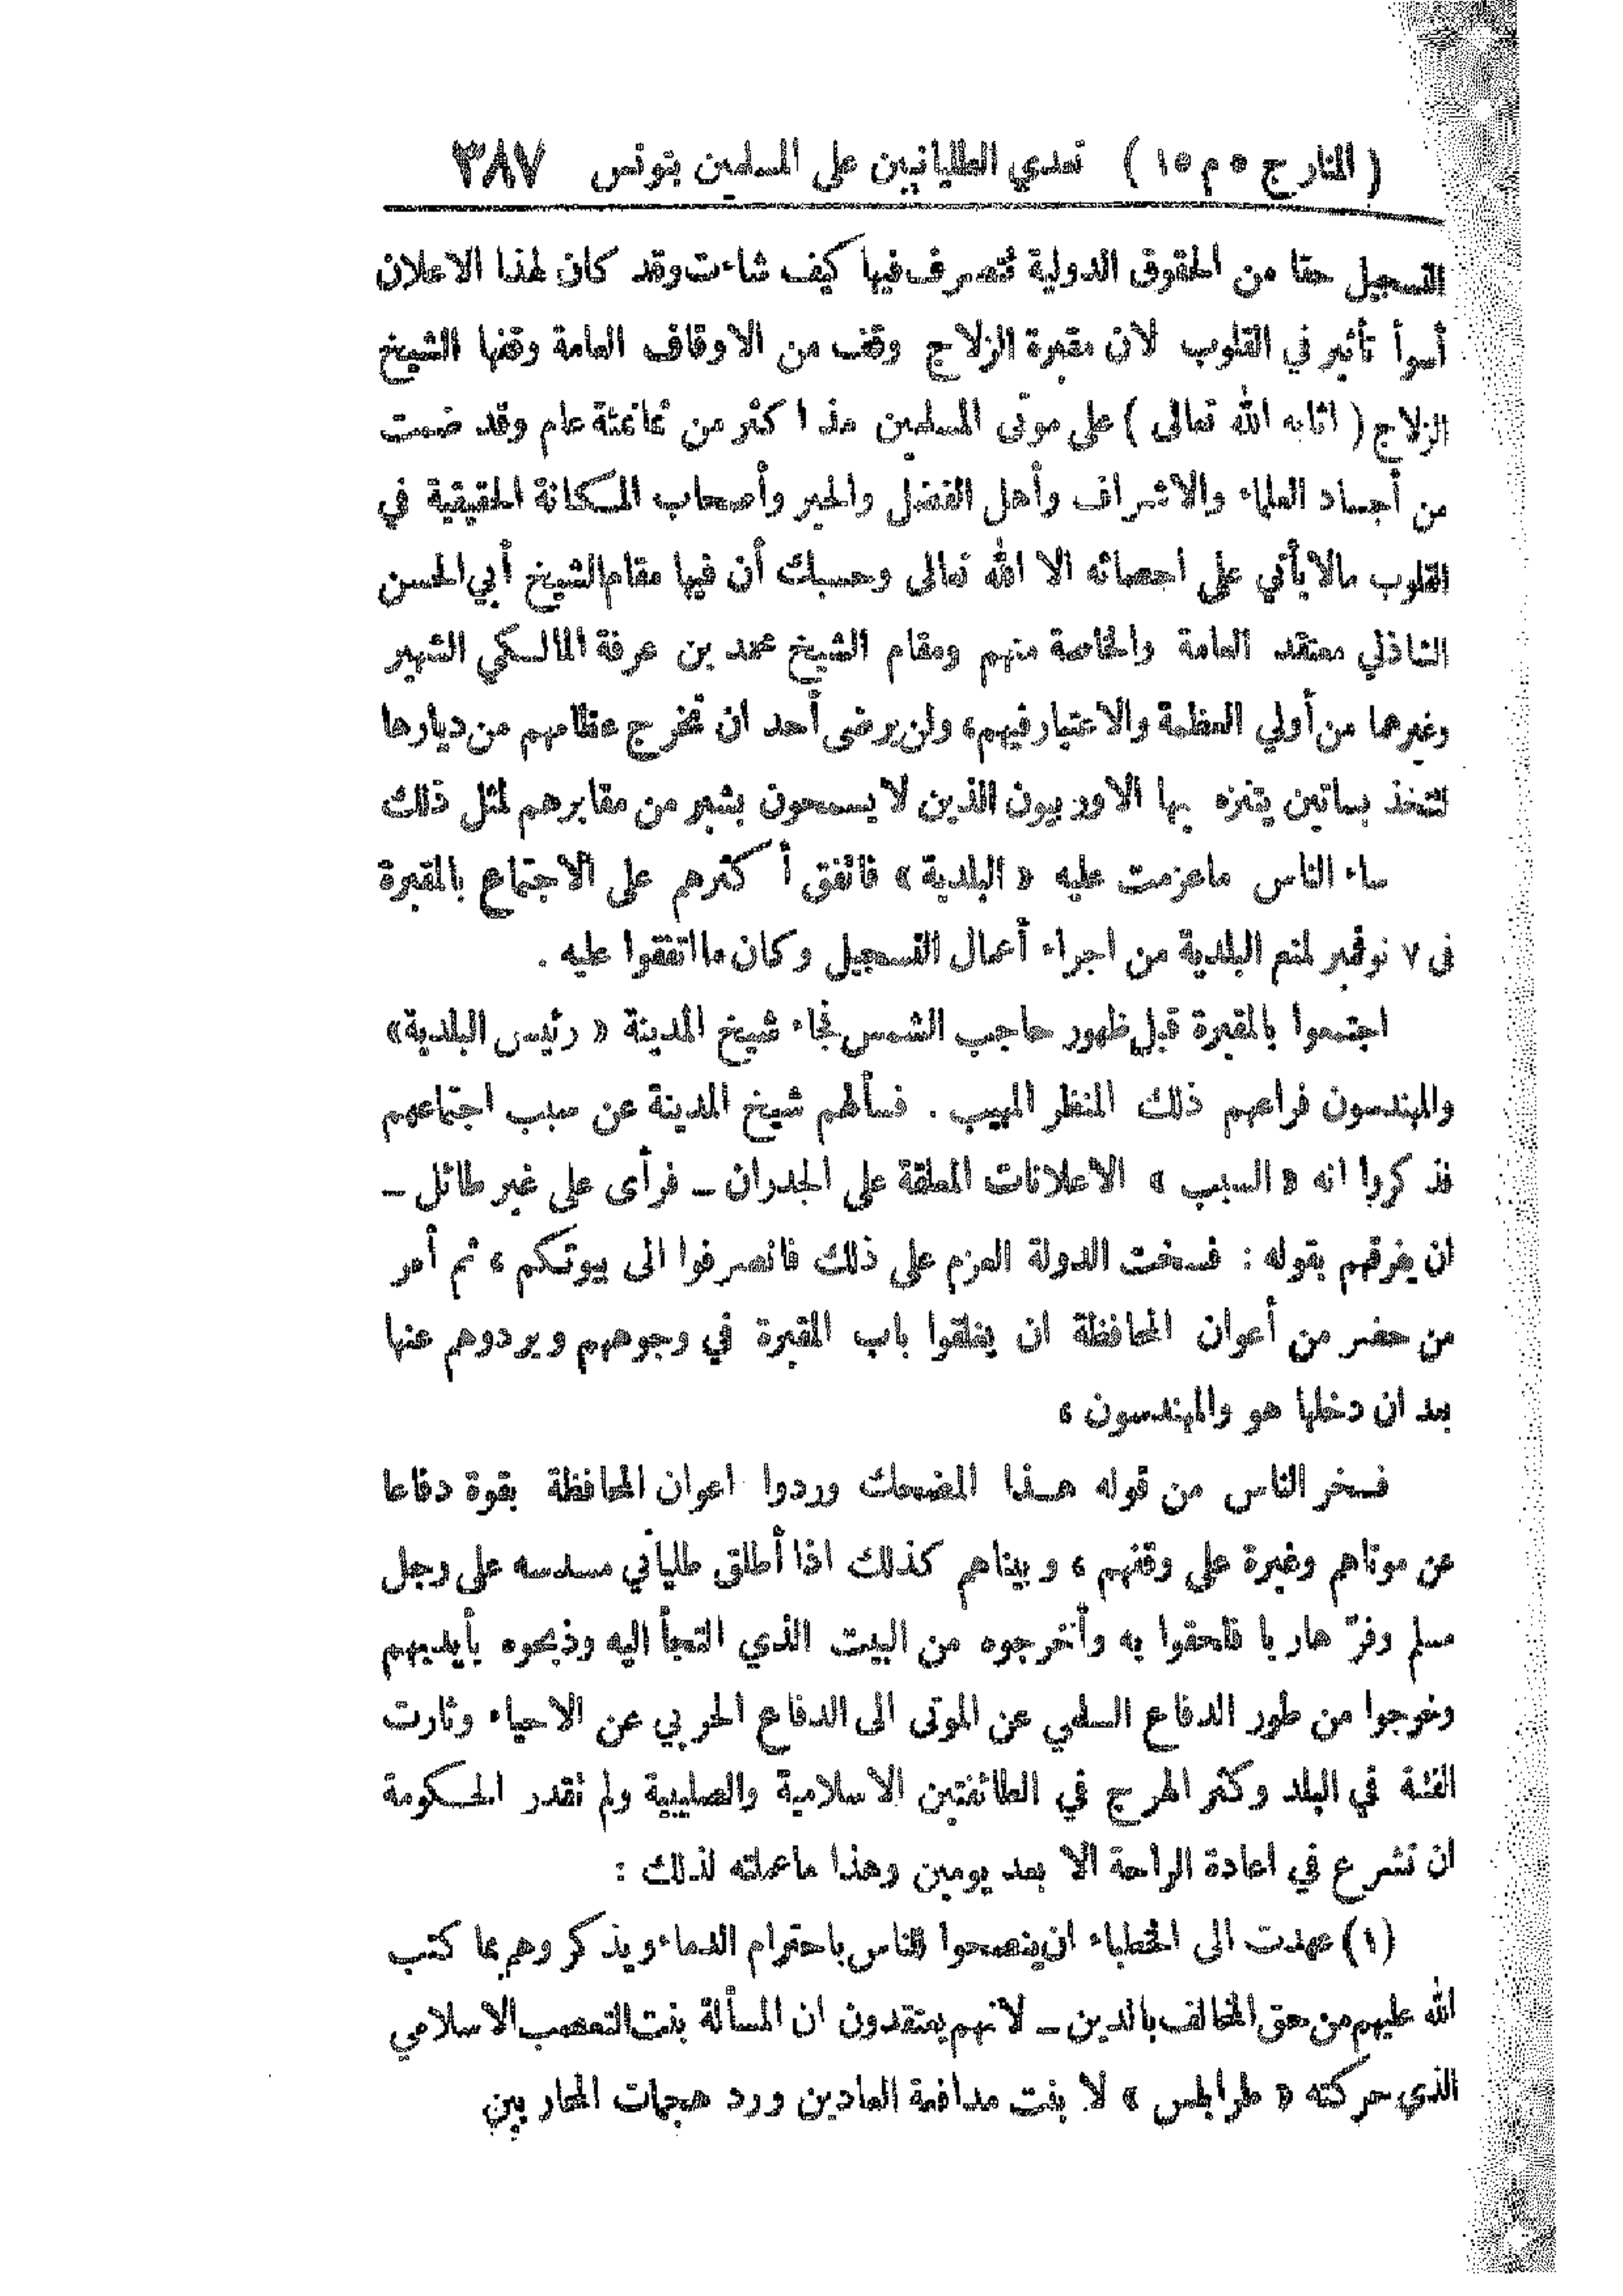 ( المنار ج ٥ م ١٥ ) تعدي الطليانيين على المسلمين بتونس ٣٨٧
التسجيل حقا من الحقوق الدولية تتصرف فيها كيف شاءت وقد كان لهذا الاعلان
أسوأ تأثير في القلوب لان مقبرة الزلاج وقف من الاوقاف العامة وقفها الشيخ
الزلاج ( اثابه الله تعالى ) على موتى المسلمين منذ اكثر من ثمانمئة عام وقد ضمت
من أجساد العلماء والاشراف وأهل الفضل والخير وأصحاب المكانة الحقيقية في
القلوب مالا يأتي على احصائه الا الله تعالى وحسبك أن فيها مقام الشيخ أبي الحسن
الشاذلي معتقد العامة والخاصة منهم ومقام الشيخ محمد بن عرفة المالكي الشهير
وغيرهما من أولي العظمة والاعتبار فيهم، ولن يرضى أحد ان تخرج عظامهم من ديارها
لتتخذ بساتين يتنزه بها الاوربيون الذين لا يسمحون بشبر من مقابرهم لمثل ذلك
ساء الناس ماعزمت عليه « البلدية » فاتفق أكثرهم على الاجتماع بالمقبرة
فى ٧ نوفمبر لمنع البلدية من اجراء أعمال التسجيل وكان ما اتفقوا عليه .
اجتمعوا بالمقبرة قبل ظهور حاجب الشمس فجاء شيخ المدينة « رئيس البلدية»
والمهندسون فراعهم ذلك المنظر المهيب . فسألهم شيخ المدينة عن سبب اجتماعهم
فذكروا انه « السبب » الاعلانات المعلقة على الجدران ـ فرأى على غير طائل ـ
ان يفرقهم بقوله : فسخت الدولة العزم على ذلك فانصرفوا الى بيوتكم ، ثم أمر
من حضر من أعوان المحافظة ان يغلقوا باب المقبرة في وجوههم ويردوهم عنها
بعد ان دخلها هو والمهندسون ،
فسخر الناس من قوله هذا المضحك وردوا اعوان المحافظة بقوة دفاعا
عن موتاهم وغيرة على وقفهم ، وبيناهم كذلك اذا أطلق طلياني مسدسه على رجل
مسلم وفرّ هاربا فلحقوا به وأخرجوه من البيت الذي التجأ اليه وذبحوه بأيديهم
وخرجوا من طور الدفاع السلمي عن الموتى الى الدفاع الحربي عن الاحياء وثارت
الفتنة في البلد وكثر الهرج في الطائفتين الاسلامية والصليبية ولم تقدر الحكومة
ان تشرع في اعادة الراحة الا بعد يومين وهذا ماعملته لذلك :
(١) عهدت الى الخطباء ان ينصحوا للناس باحترام الدماء ويذكروهم بما كتب
الله عليهم من حق المخالف بالدين ـ لانهم يعتقدون ان المسألة بنت التعصب الاسلامي
الذي حركته « طرابلس » لا بنت مدافعة العادين ورد هجمات المحاربين